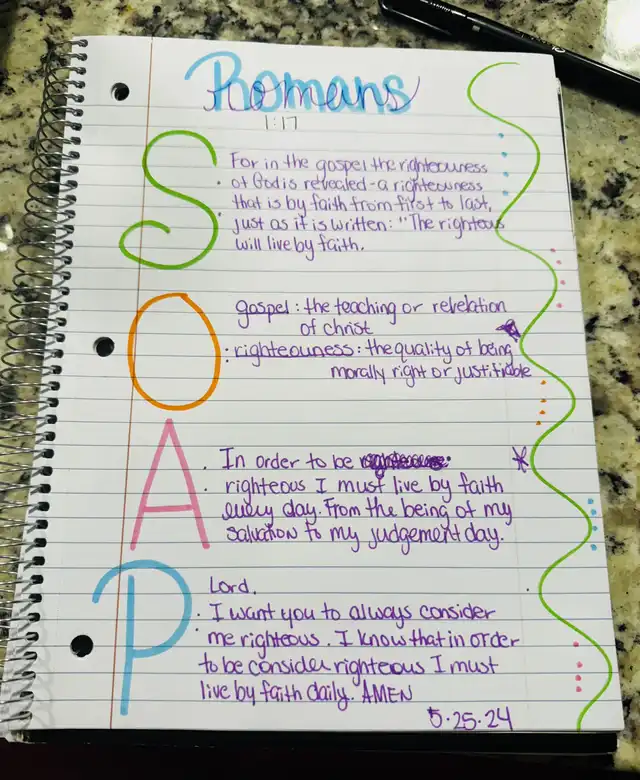 Romans
1:17
S
For in the gospel the righteousness
of God is revealed - a righteousness
that is by faith from first to last,
just as it is written: "The righteous
will live by faith.
O
gospel: the teaching or revelation
of christ
: righteouness: the quality of being
morally right or justifiable
A
In order to be
righteous I must live by faith
every day. From the being of my
salvation to my judgement day.
P
Lord,
I want you to always consider
me righteous. I know that in order
to be consider righteous I must
live by faith daily. AMEN
5.25.24